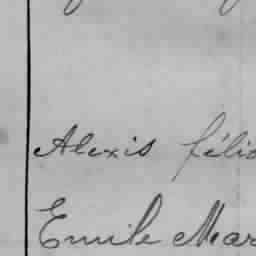 Alexis féli
Emile Mar